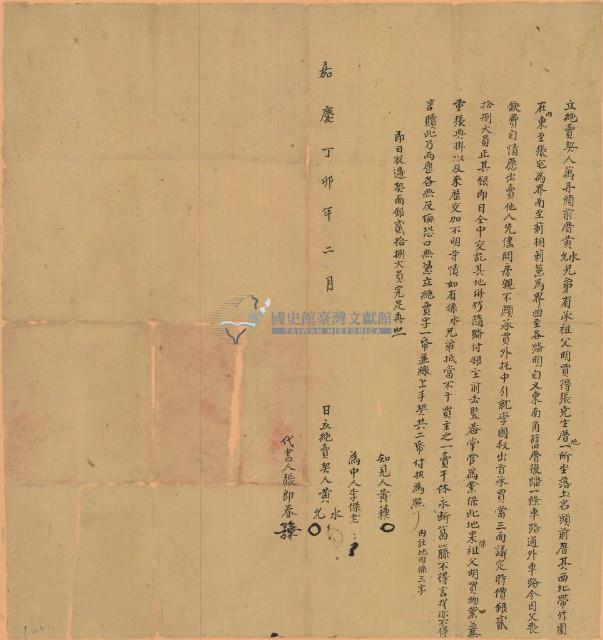 立絕賣契人萬丹頭前厝黃水允兄弟有承祖父明買得張先生厝地一所坐落土名頭前厝其西北帶竹圍
在內東至張宅為界南至莿桐莿蔥為界四至各踏明白又東南角舊厝後踏一條車路通外車路今因父喪
欽費自情愿出賣他人先儘問房親不願承買外托中引就李國叔出首承買當三面議定時價銀貳
拾捌大員正其銀即日仝中交訖其地併竹隨踏付銀主前去監巷掌管為業保此地果係祖父明買物業並無
重張典掛以及來歷交加不明等情如有係水兄弟抵當不干買主之一賣千休永斷葛藤不得言找亦不得
言贖此乃兩愿各無反悔恐口無憑立絕賣字一帋並繳上手契共二帋付執為照
內註地內係三字
即日收過契面銀貳拾捌大員完足再照
知見人黃
為中人李傑老
嘉慶丁卯年二月 日立絕賣契人黃水允
代書人張即春
國史館臺灣文獻館
TAIWAN HISTORICA